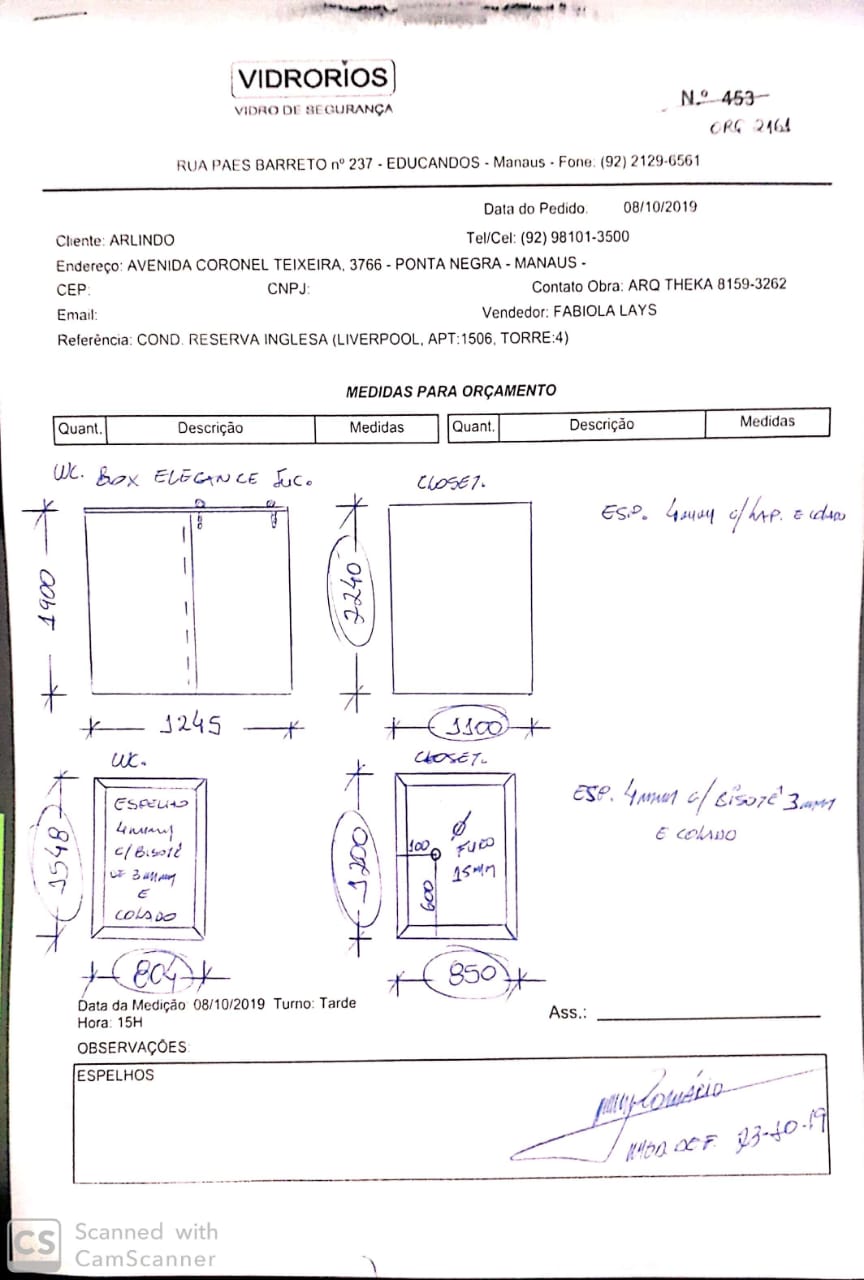 VIDRORIOS
VIDRO DE SEGURANÇA
N.º 453
ORÇ 2161
RUA PAES BARRETO nº 237 - EDUCANDOS - Manaus - Fone: (92) 2129-6561
Data do Pedido: 08/10/2019
Cliente: ARLINDO Tel/Cel: (92) 98101-3500
Endereço: AVENIDA CORONEL TEIXEIRA, 3766 - PONTA NEGRA - MANAUS -
CEP: CNPJ: Contato Obra: ARQ THEKA 8159-3262
Email: Vendedor: FABIOLA LAYS
Referência: COND. RESERVA INGLESA (LIVERPOOL, APT:1506, TORRE:4)
MEDIDAS PARA ORÇAMENTO
Quant. Descrição Medidas Quant. Descrição Medidas
WC. BOX ELEGANCE INC.
CLOSET.
ESP. 4mm c/ LAP. E COLADO
1900
2240
1245
1100
WC.
CLOSET.
ESPELHO
4mm
c/ BISOTÊ
3mm
E
COLADO
1548
1200
100
Ø
FURO
15MM
600
ESP. 4mm c/ BISOTÊ 3mm
E COLADO
804
850
Data da Medição: 08/10/2019 Turno: Tarde
Hora: 15H
Ass.:
OBSERVAÇÕES:
ESPELHOS
Romário
MOD. DEF. 23-10-19
CS Scanned with
CamScanner